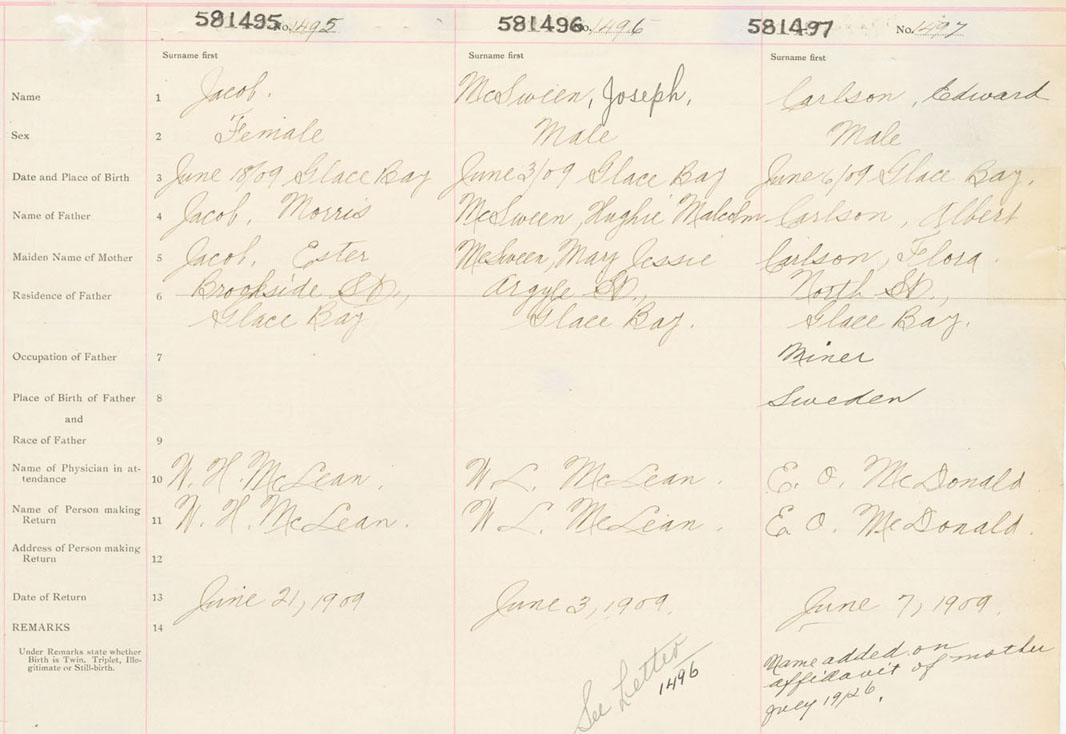 581495 No. 1495 581496 No. 1496 581497 No. 1497
Surname first Surname first Surname first
Name 1 Jacob. McSween, Joseph, Carlson, Edward
Sex 2 Female Male Male
Date and Place of Birth 3 June 18/09 Glace Bay June 3/09 Glace Bay June 6/09 Glace Bay.
Name of Father 4 Jacob, Morris McSween, Hughie Malcolm Carlson, Albert
Maiden Name of Mother 5 Jacob, Ester McSween, Mary Jessie Carlson, Flora.
Residence of Father 6 Brookside St., Argyle St., North St.,
Glace Bay Glace Bay. Glace Bay.
Occupation of Father 7 Miner
Place of Birth of Father 8 Sweden
and
Race of Father 9
Name of Physician in at-
tendance 10 W. H. McLean. W. L. McLean. E. O. McDonald
Name of Person making
Return 11 W. H. McLean. W. L. McLean. E. O. McDonald.
Address of Person making
Return 12
Date of Return 13 June 21, 1909 June 3, 1909. June 7, 1909.
REMARKS 14
Under Remarks state whether
Birth is Twin, Triplet, Ille-
gitimate or Still-birth.
See Letter
1496
Name added on
affidavit of mother
July 19/26.